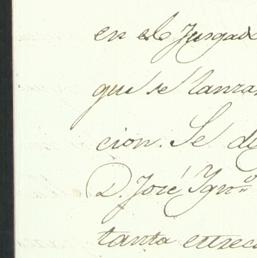 en el Juzgad
que se lanza
cion. Se di
D. José Ygno
tanta estrec